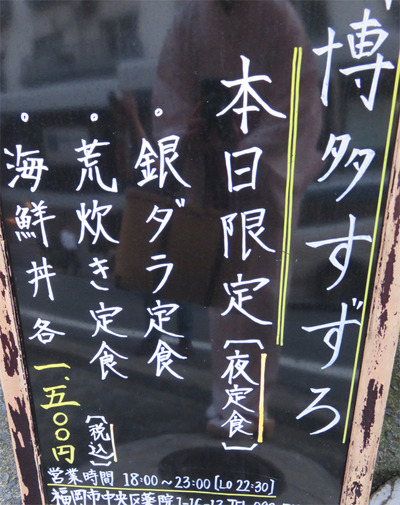 博多すずろ
本日限定〔夜定食〕
・銀ダラ定食
・荒炊き定食
・海鮮丼 各
一、五〇〇円
〔税込〕
営業時間 18:00〜23:00[LO 22:30]
福岡市中央区薬院1-16-13 TEL